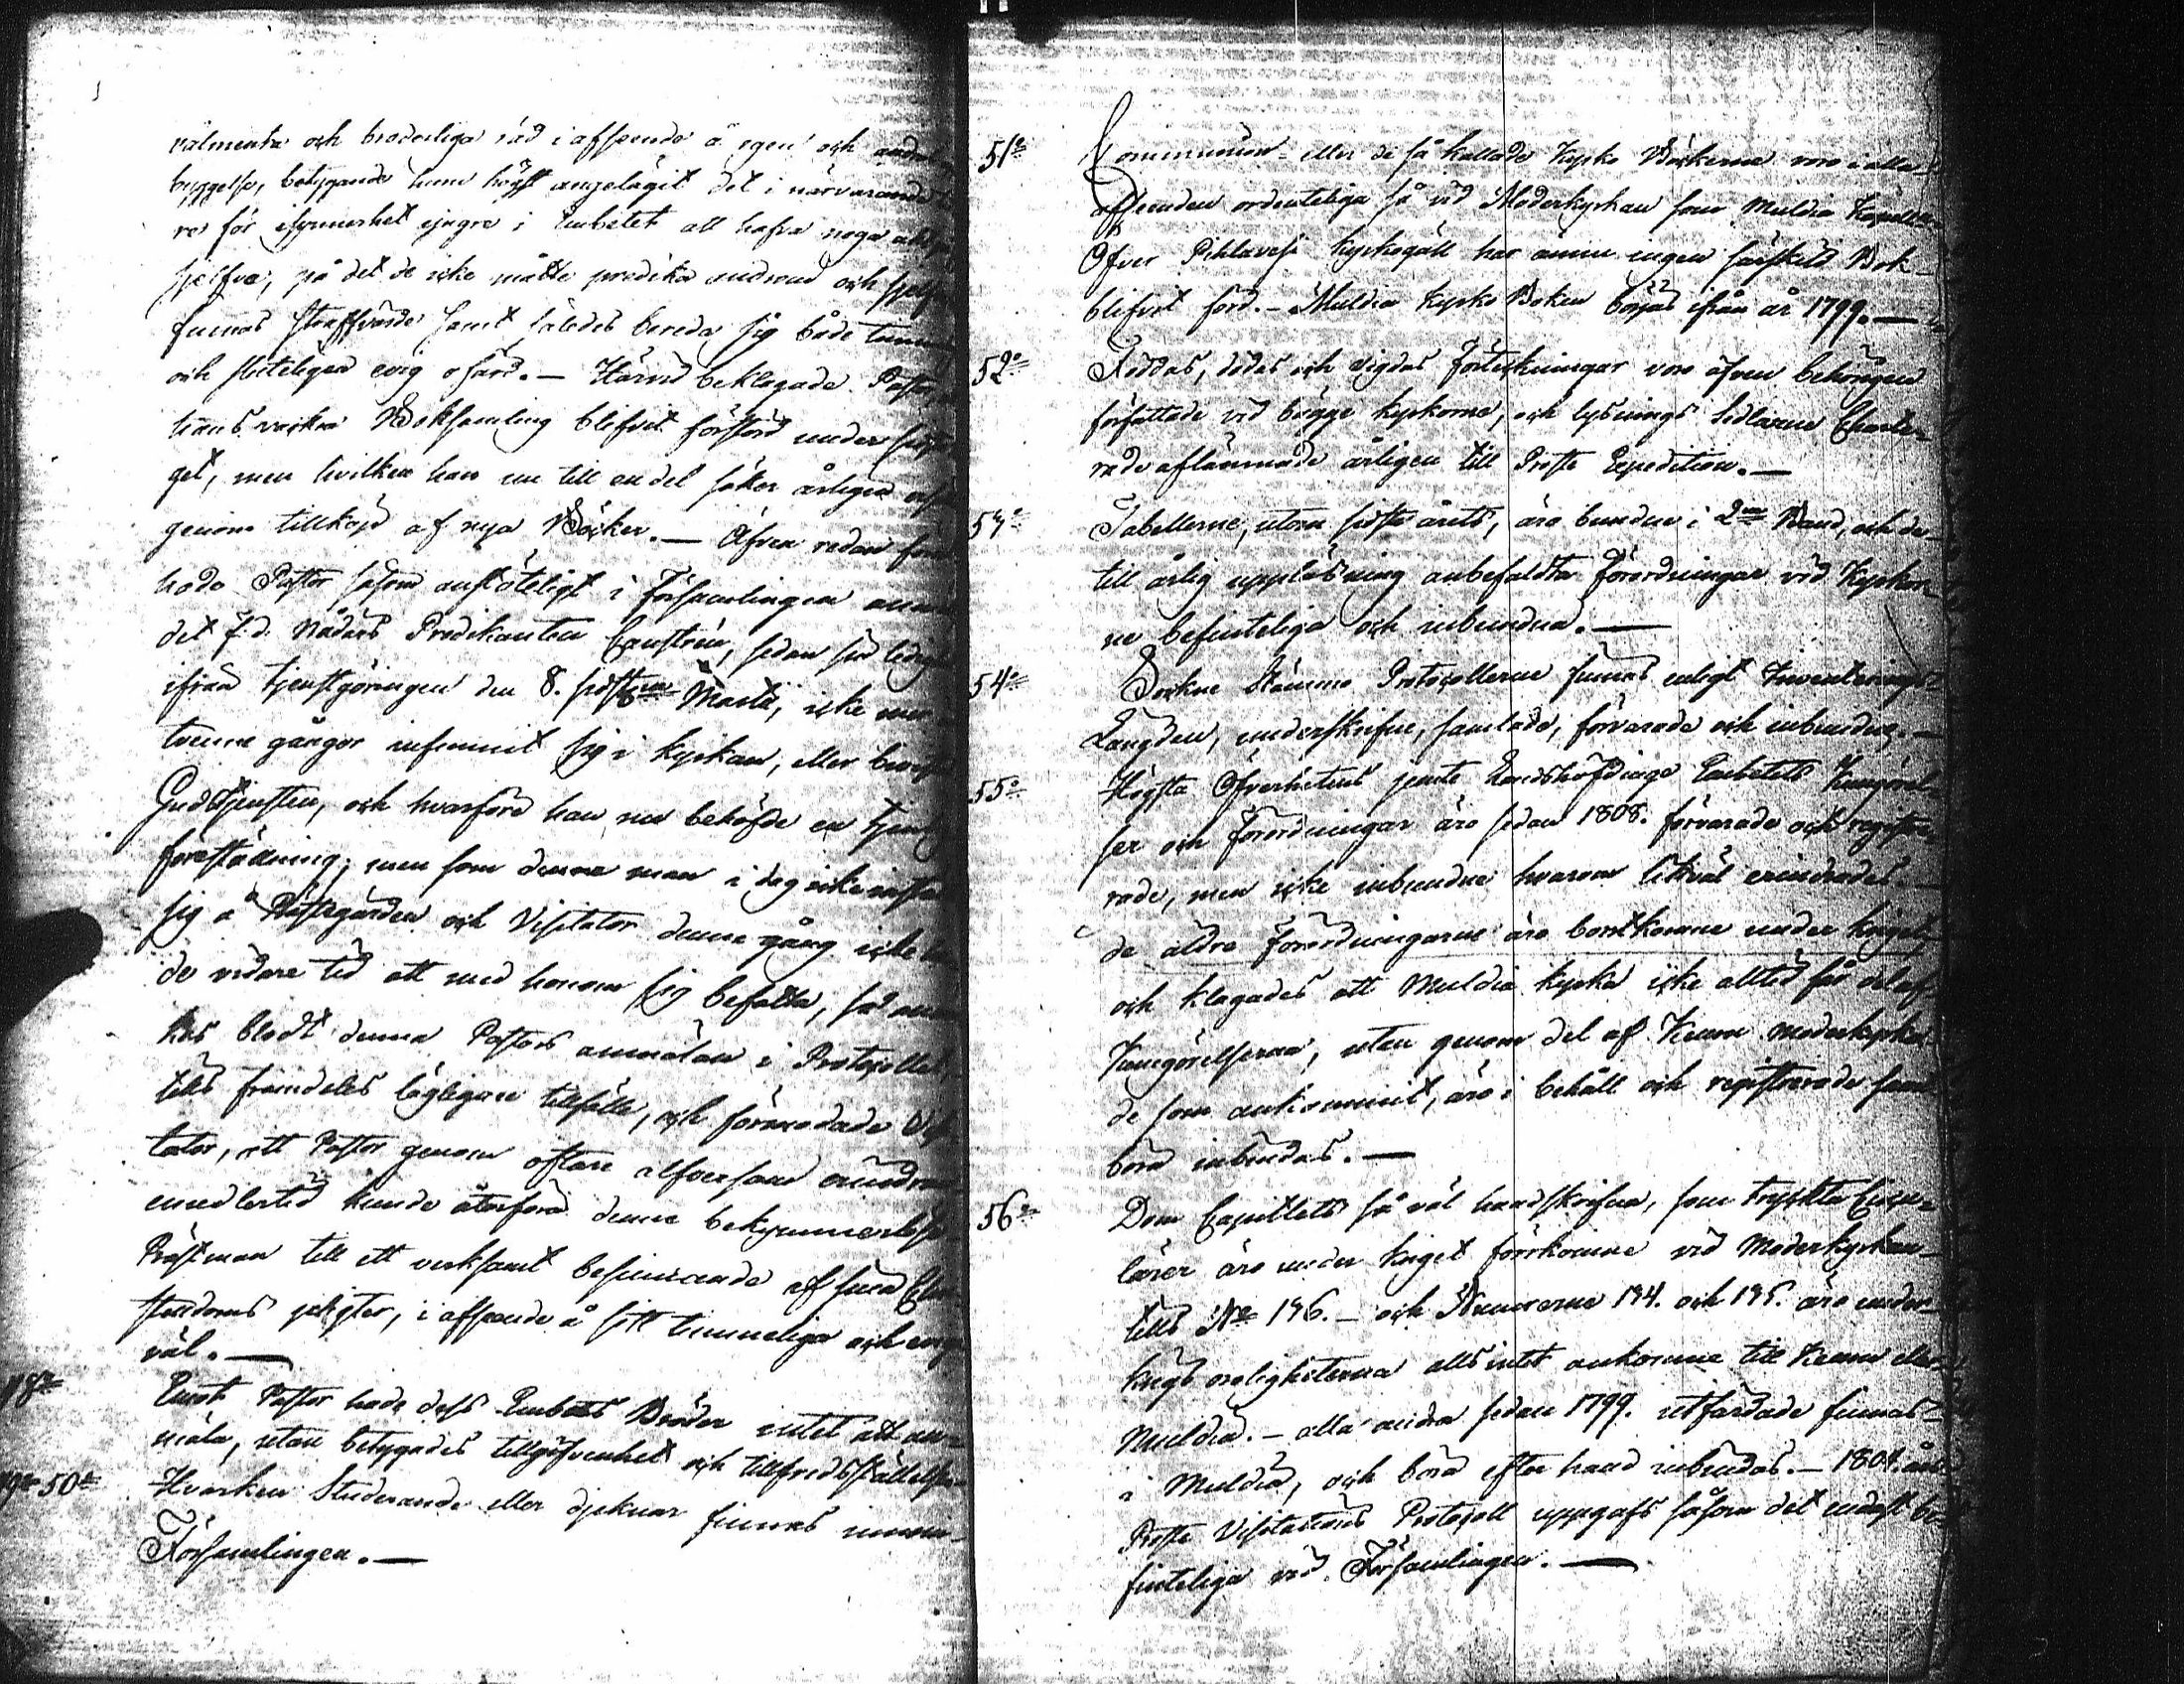 välmenta och broderliga råd i afseende å egen och andras
byggelse, betygande huru högst angelägit det i närvarande
re för isynnerhet yngre i Embetet att hafva noga akt på
sjelfva, på det de icke måtte predika androm och sjelfva
finnas straffvärde samt således bereda sig både timm
och sluteligen evig ofärd. — Härvid beklagade Pastor,
hans vackra Boksamling blifvit förstörd under sista
get, men hvilken han nu till en del söker årligen
genom tillköp af nya Böcker. — Äfven redan
hade Pastor såsom anstöteligt i Församlingen anm
det f.d. Nådårs Predikanten Canstrén, sedan sin ledig
ifrån tjenstgöringen den 8. sistl. Martii, icke mer
tvenne gånger infunnit sig i kyrkan, eller bevist
Gudstjensten, och hvarföre han nu behöfde en tjen
föreställning; men som denne man i dag icke instä
sig å Prästgården och Visitator denna gång icke ha
de vidare tid att med honom sig befatta, så an
kes blodt denna Pastors anmälan i Protocollet
tills framdeles lägligare tillfälle, och förmodade Visi
tator, att Pastor genom oftare alfvarsam erindran
emedlertid kunde återföra denne bekymmerlöse
Prästman till ett verksamt besinnande af sina Chri
stendoms pligter, i afseende å sitt timmeliga och eviga
väl. —
48:o Emot Pastor hade dess Embets Bröder intet att an-
mäla, utan betygades tillgifvenhet och tillfredsställelse
49:o 50:o Hvarken Studerande eller djeknar finnas inom
Församlingen. —
51:o Communion- eller de så kallade Kyrko Böckerne voro i alla
afseenden ordenteliga så vid Moderkyrkan som Muldia Kapell
Öfver Pihlavesi kyrkogäll har ännu ingen särskild Bok
blifvit förd. — Muldia Kyrko Boken börjas ifrån år 1799. —
52:o Föddas, dödas och vigdas förtekningar voro äfven behörigen
författade vid bägge kyrkorne, och lysnings Sedlarne Charte-
rade aflämnade årligen till Prosts Expedition. —
53:o Tabellerne, utom sista årets, äro bundne i 2ne Band, och de
till årlig uppläsning anbefaldta Förordningar vid Kyrkor-
ne befinteliga och inbundna. —
54:o Sockne Stämmo Protocollerne finnas enligt Inventarings-
Längden, underskrifne, samlade, förvarade och inbundne. —
55:o Högsta Öfverhetens jemte Landshöfdinge Embetets Kungörel-
ser och Förordningar äro sedan 1808. förvarade och registre-
rade, men icke inbundne hvarom likväl erindrades.
de äldre Förordningarne äro bortkomne under kriget,
och klagades att Muldia kyrka icke alltid får del af
Kungörelserna, utan genom del af Keuru Moderkyrka
de som ankommit, äro i behåll och registrerade samt
böra inbindas. —
56:o Dom Capitlets så väl handskrifna, som tryckta Circu-
lärer äro under kriget förkomne vid Moderkyrkan
tills No 196. — och Numrerne 194. och 195. äro under
krigs oroligheterna alls intet ankomne till Keuru eller
Muldia. — alla andra sedan 1799. utfärdade finnas
i Muldia, och böra efter hand inbindas. — 1804. års
Prosts Visitations Protocoll uppgafs såsom det endast be-
finteliga vid Församlingen. —